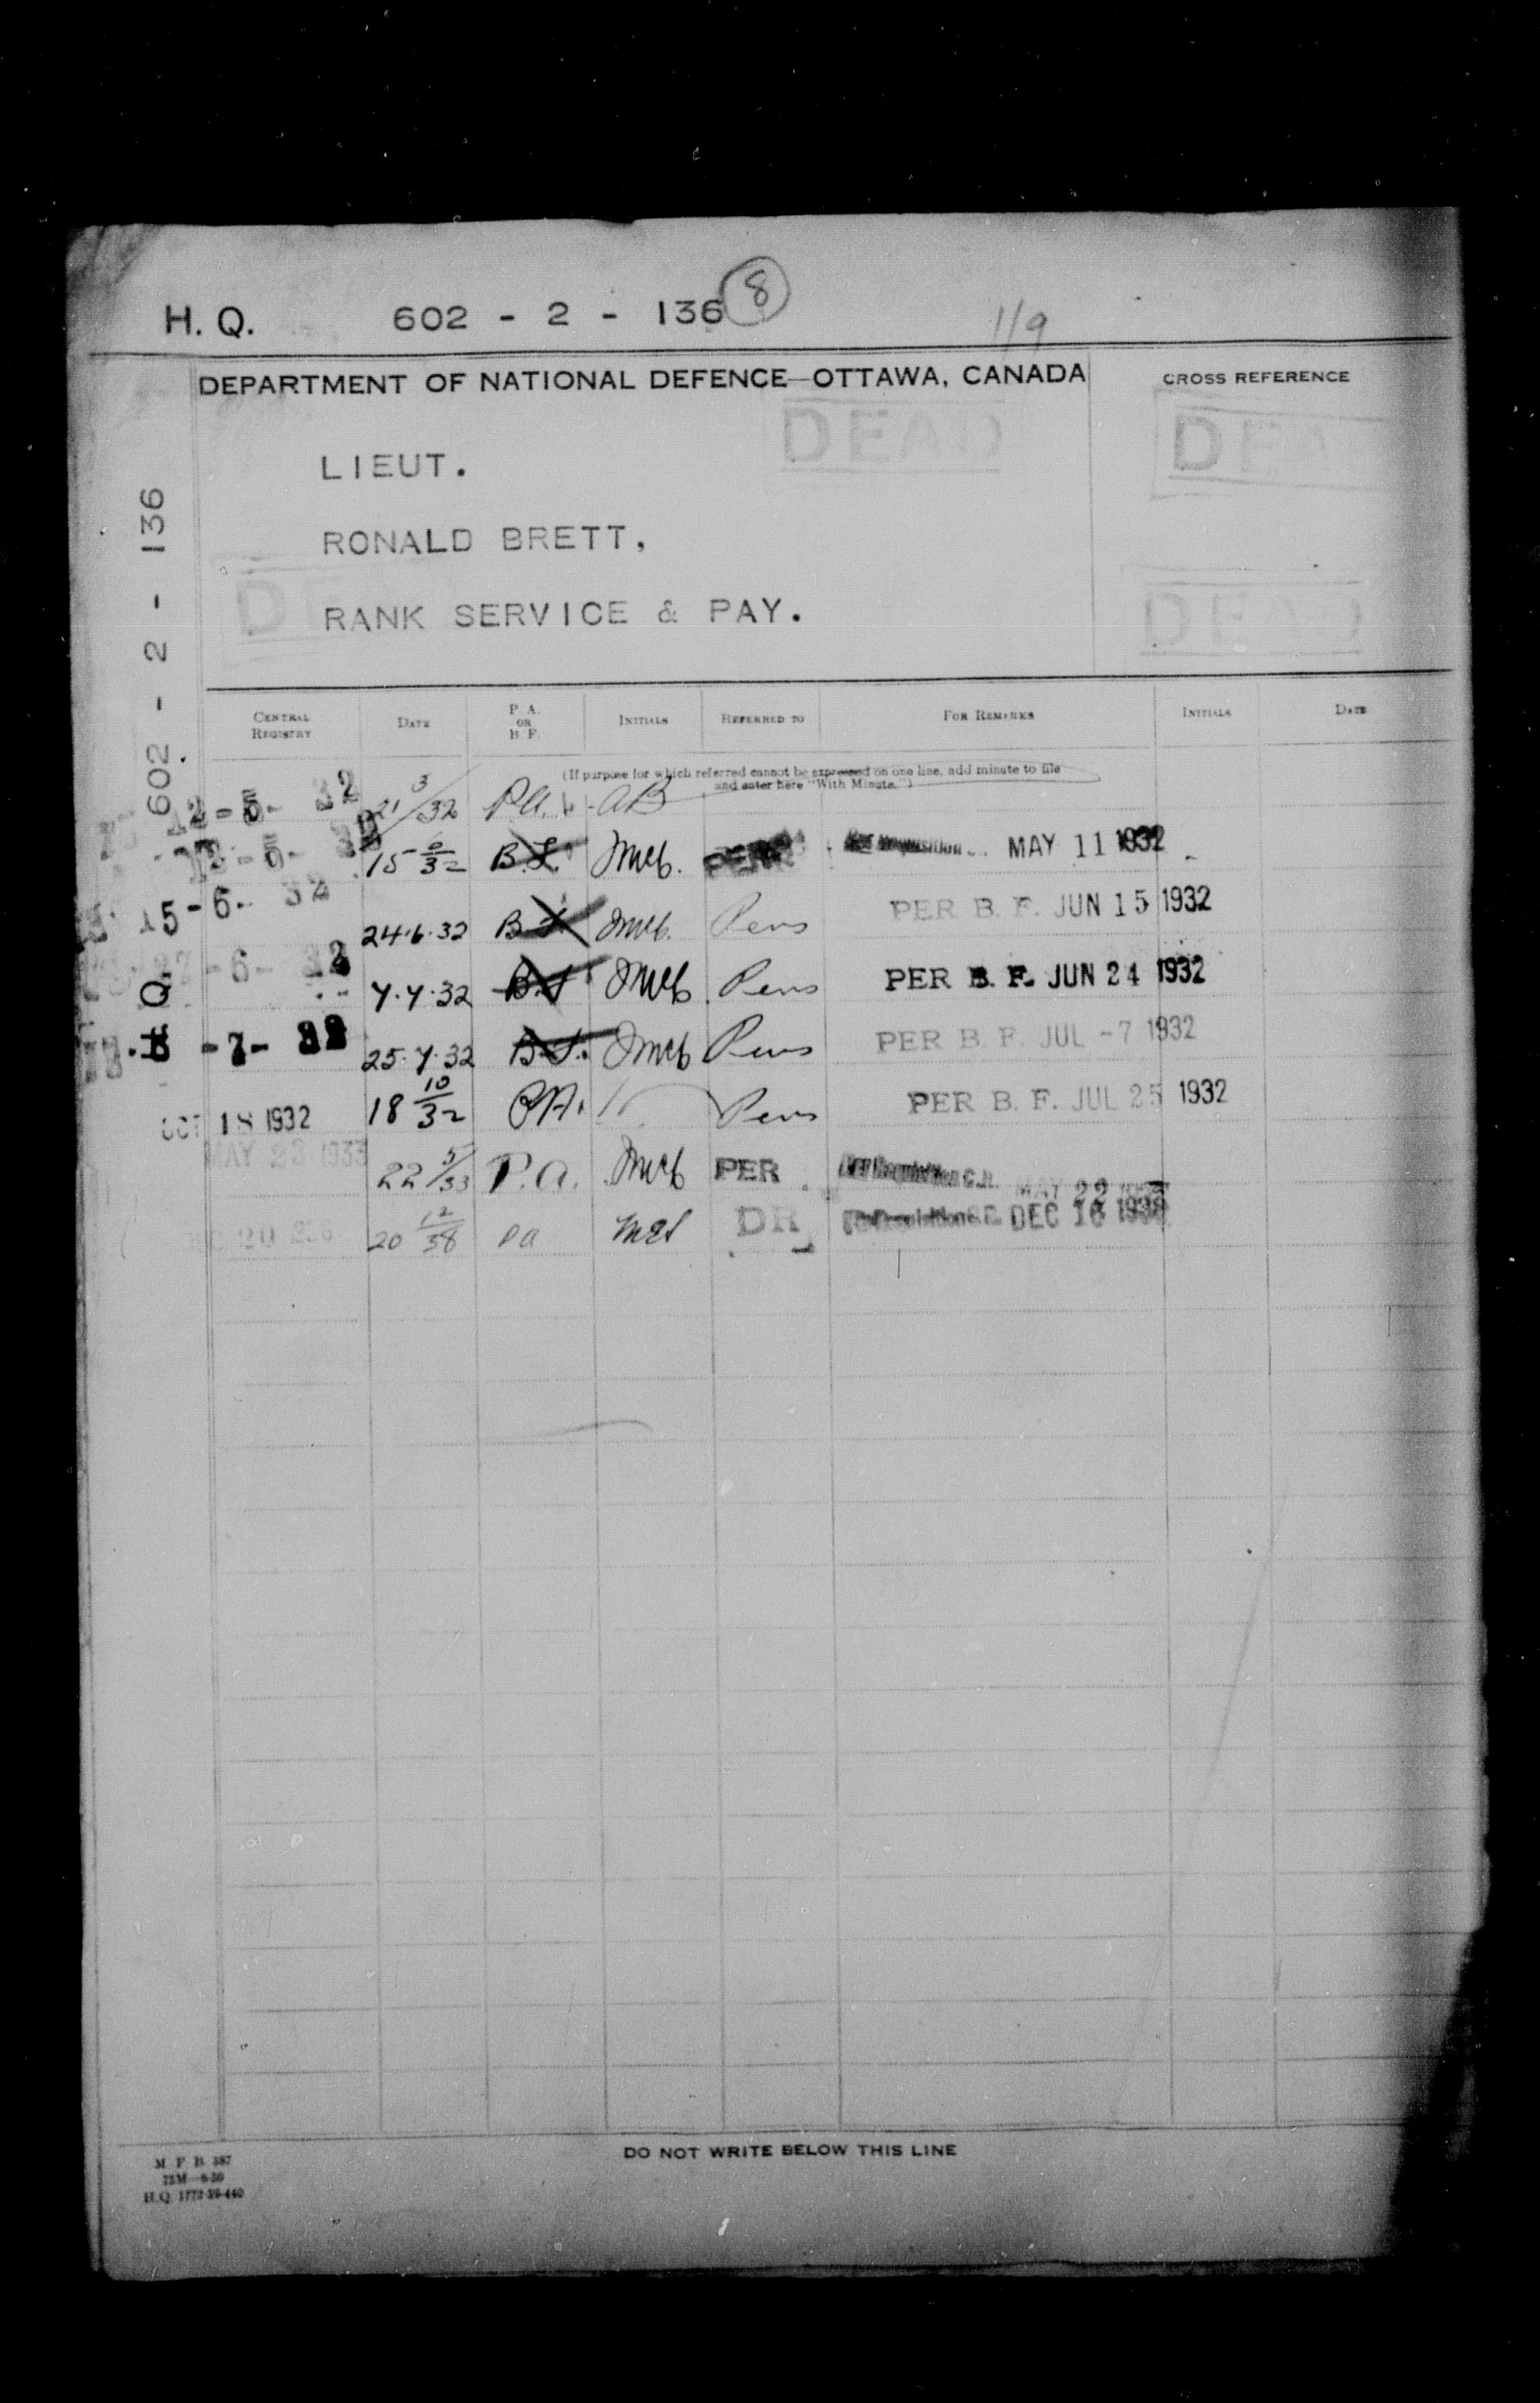 H. Q. 602 - 2 - 136 8
1/9
DEPARTMENT OF NATIONAL DEFENCE—OTTAWA, CANADA
CROSS REFERENCE
DEAD
DEAD
LIEUT.
RONALD BRETT,
RANK SERVICE & PAY.
DEAD
H.Q. 602 - 2 - 136
CENTRAL REGISTRY DATE P. A. OR B. F. INITIALS REFERRED TO FOR REMARKS INITIALS DATE
(If purpose for which referred cannot be expressed on one line, add minute to file
and enter here "With Minute.")
12-5-32 21 3/32 P.A. AB
15 6/32 B.F. PER MAY 11 1932
15-6-32 24.6.32 B.F. Pers PER B. F. JUN 15 1932
-6-32 7.7.32 B.F. Pers PER B. F. JUN 24 1932
-7-32 25.7.32 B.F. Pers PER B. F. JUL -7 1932
OCT 18 1932 18 10/32 P.A. Pers PER B. F. JUL 25 1932
MAY 23 1933 22 5/33 P.A. PER MAY 22
20 12/38 PA DR DEC 16 1938
DO NOT WRITE BELOW THIS LINE
M. F. B. 387
75M
H.Q. 1772-39-440